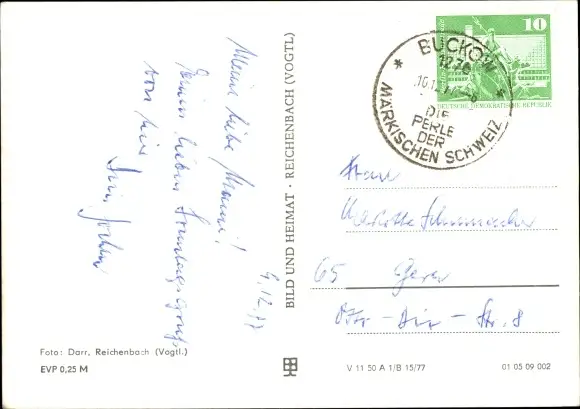 Meine liebe Mami!
Einen lieben Sonntagsgruß
von hier
Dein Jochen
9.12.77
Foto: Darr, Reichenbach (Vogtl.)
EVP 0,25 M
BILD UND HEIMAT · REICHENBACH (VOGTL)
10
DEUTSCHE DEMOKRATISCHE REPUBLIK
* BUCKOW *
1276
10.12.77
DIE
PERLE
DER
MÄRKISCHEN SCHWEIZ
Frau
65 Gera
Str. 8
V 11 50 A 1/B 15/77
01 05 09 002